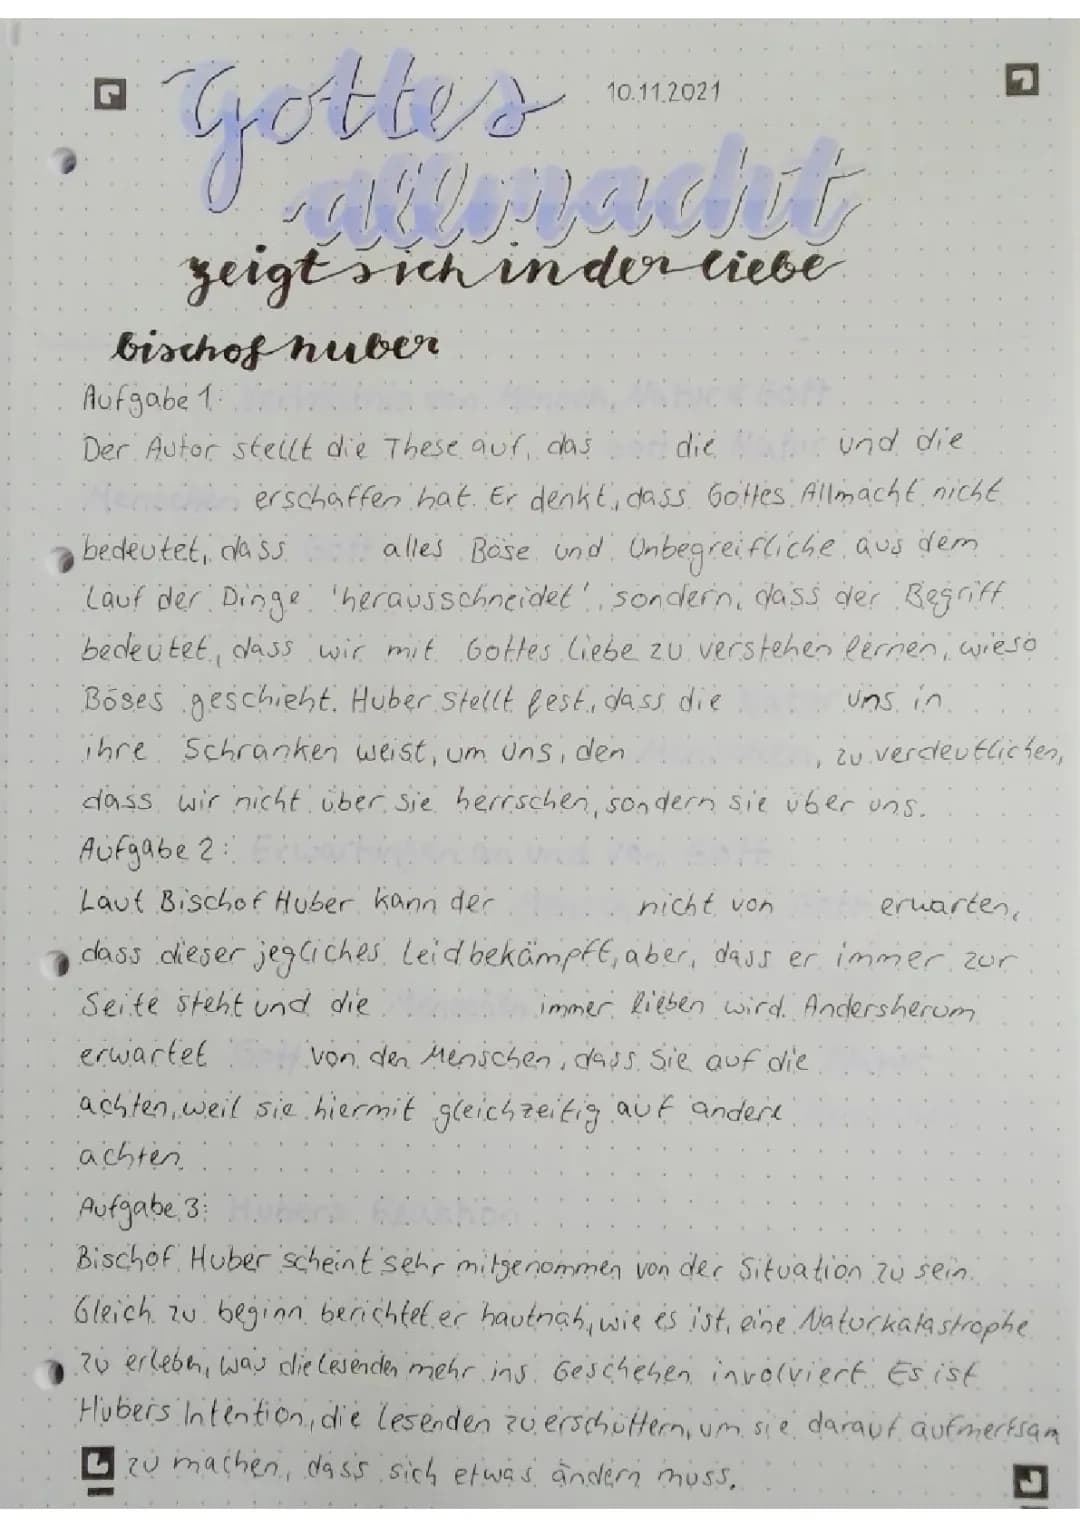 Gottes
10.11.2021
allmacht
zeigt sich in der liebe
bischof huber
Aufgabe 1: Verhältnis von Mensch, Natur & Gott
Der Autor stellt die These auf, das Gott die Natur und die
Menschen erschaffen hat. Er denkt, dass Gottes Allmacht nicht
bedeutet, dass Gott alles Böse und Unbegreifliche aus dem
Lauf der Dinge 'herausschneidet', sondern, dass der Begriff
bedeutet, dass wir mit Gottes Liebe zu verstehen lernen, wieso
Böses geschieht. Huber stellt fest, dass die Natur uns in
ihre Schranken weist, um uns, den Menschen, zu verdeutlichen,
dass wir nicht über sie herrschen, sondern sie über uns.
Aufgabe 2: Erwartungen an und von Gott
Laut Bischof Huber kann der Mensch nicht von Gott erwarten,
dass dieser jegliches Leid bekämpft, aber, dass er immer zur
Seite steht und die Menschen immer lieben wird. Andersherum
erwartet Gott von den Menschen, dass Sie auf die
achten, weil sie hiermit gleichzeitig auf andere
achten.
Aufgabe 3: Hubers Reaktion
Bischof Huber scheint sehr mitgenommen von der Situation zu sein.
Gleich zu beginn berichtet er hautnah, wie es ist, eine Naturkatastrophe
zu erleben, was die Lesenden mehr ins Geschehen involviert. Es ist
Hubers Intention, die Lesenden zu erschüttern, um sie darauf aufmerksam
zu machen, dass sich etwas ändern muss.